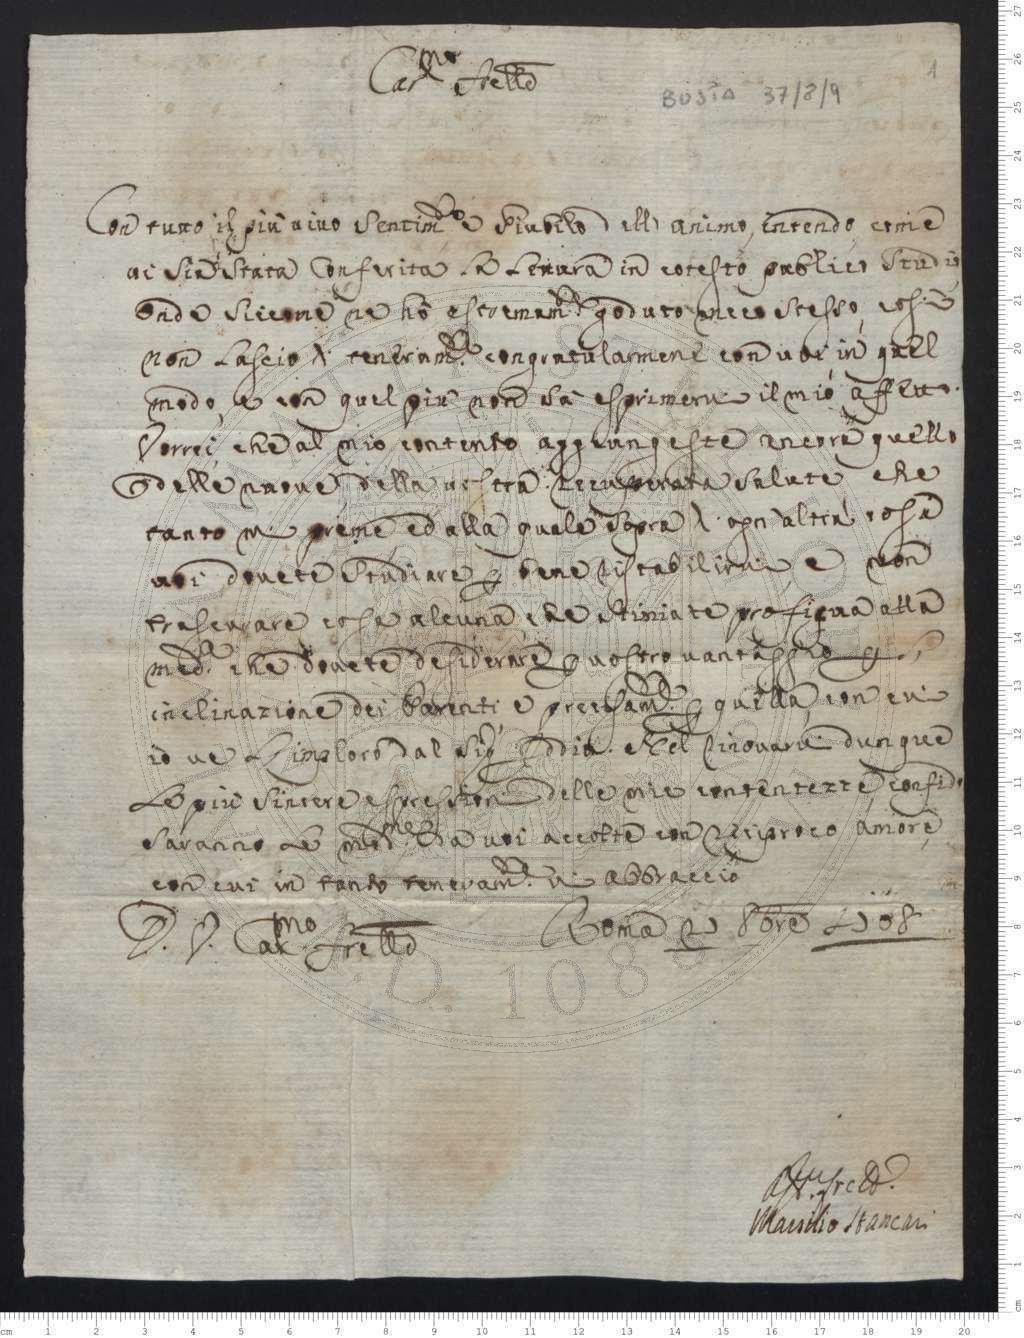 Car.mo frello
BUSTA 37/8/9
1
Con tutto il più vivo sentim.to e giubilo dell'animo, intendo, come
vi sia stata conferita la lettura in cotesto publico studio
onde siccome ne hò estremam.te goduto meco stesso, così
non lascio di teneram.te congratularmene con voi in quel
modo, e con quel più non sà esprimervi il mio affetto.
Vorrei, che al mio contento aggiungeste ancora quello
delle nuove della vostra recuperata salute che
tanto mi preme ed alla quale sopra d'ogn'altra cosa
voi dovete studiare p bene ristabilirvi, e non
trascurare cosa alcuna che stimiate proficua alla
med.a che dovete desiderare p vostro vantaggio, p
inclinazione dei Parenti, e precisam.te p quella, con cui
io ve l'imploro dal Sig.r Iddio. Nel rinovarvi dunque
le più sincere espressioni delle mie contentezze, confido
saranno le med.me da voi accolte con reciproco amore,
con cui in tanto teneram.te vi abbraccio
D. V. Car.mo frello Roma 21 8bre 1708
Aff.mo frello
Marsilio Stancari
A.D. 1088